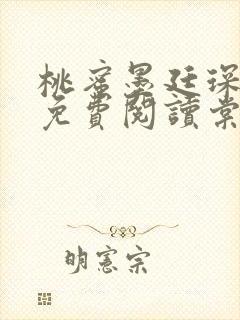 桃蜜墨廷琛
免費閱讀棠
明憲宗